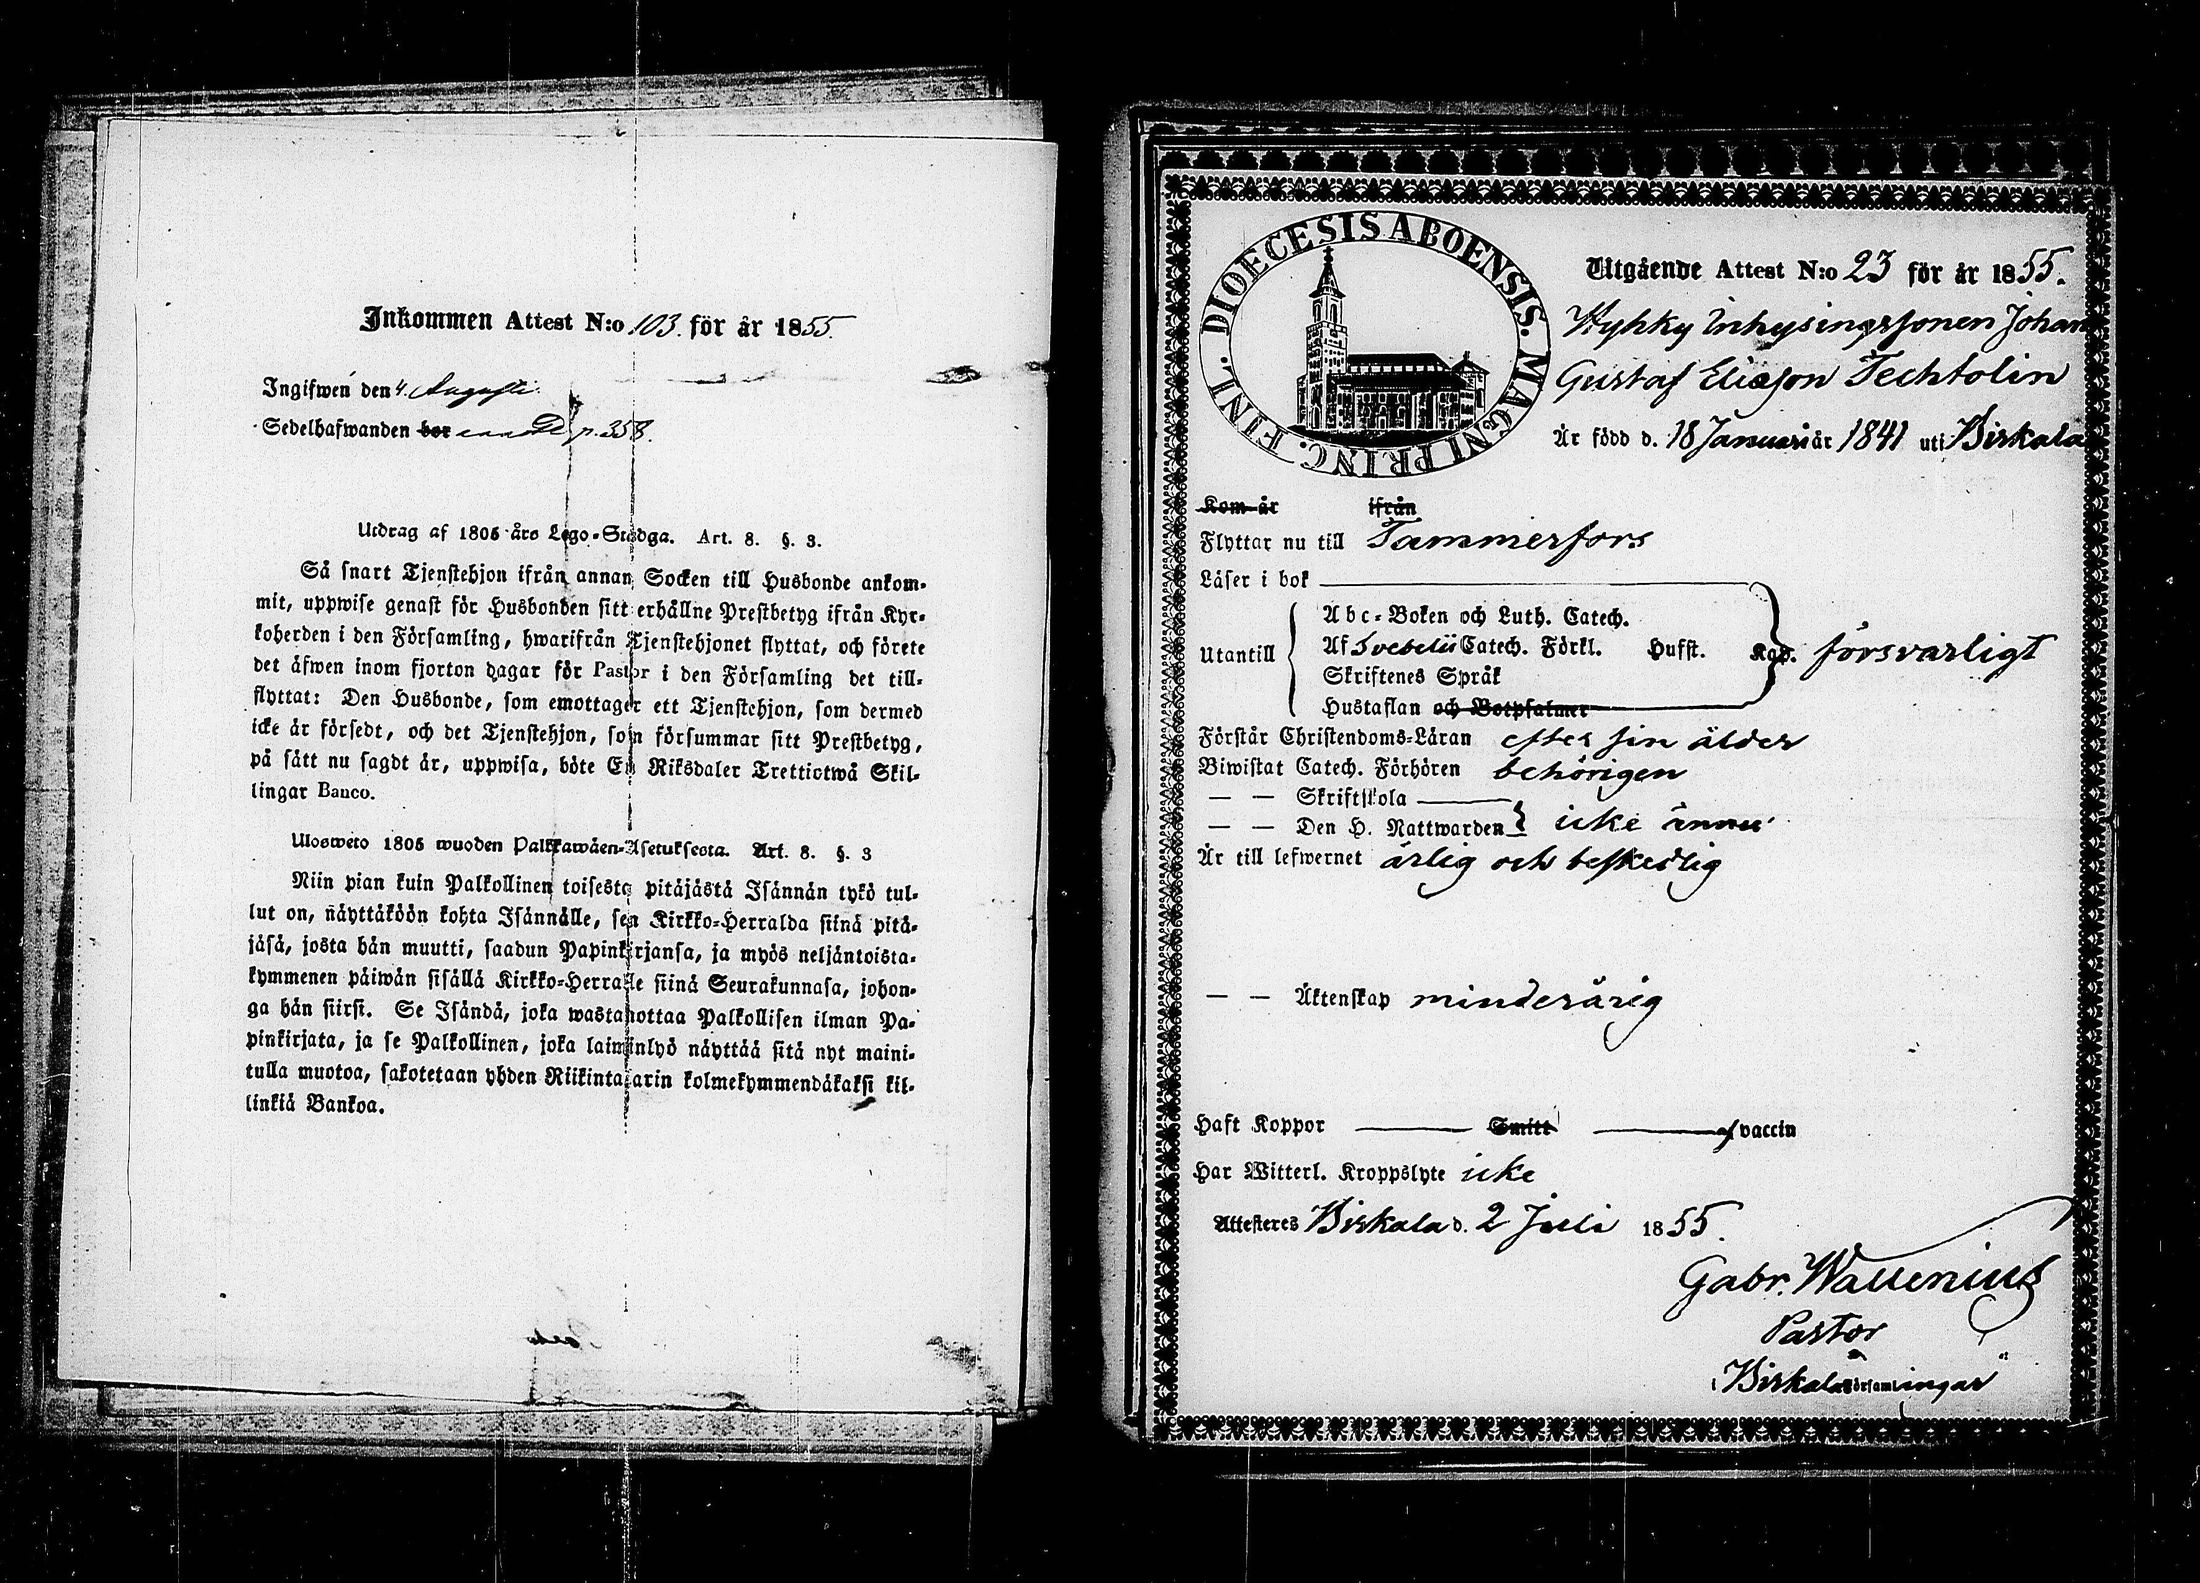 Inkommen Attest N:o 103. för år 1855.
Ingifwen den 4. Augusti.
Sedelhafwanden bor p. 358.
Utdrag af 1805 års Lego-Stadga. Art. 8. §. 3.
Så snart Tjenstehjon ifrån annan Socken till Husbonde ankom-
mit, uppwise genast för Husbonden sitt erhållne Prestbetyg ifrån Kyr-
koherden i den Församling, hwarifrån Tjenstehjonet flyttat, och förete
det äfwen inom fjorton dagar för Pastor i den Församling det till-
flyttat: Den Husbonde, som emottager ett Tjenstehjon, som dermed
icke är försedt, och det Tjenstehjon, som försummar sitt Prestbetyg,
på sätt nu sagdt är, uppwisa, böte En Riksdaler Trettiotwå Skil-
lingar Banco.
Ulosweto 1805 wuoden Palkkawäen-Asetuksesta. Art. 8. §. 3
Niin pian kuin Palkollinen toisesta pitäjästä Isännän tykö tul-
lut on, näyttäköön kohta Isännälle, sen Kirkko-Herralda siinä pitä-
jäsä, josta hän muutti, saadun Papinkirjansa, ja myös neljäntoista-
kymmenen päiwän sisällä Kirkko-Herralle siinä Seurakunnasa, johon-
ga hän siirsi. Se Isändä, joka wastanottaa Palkollisen ilman Pa-
pinkirjata, ja se Palkollinen, joka laiminlyö näyttää sitä nyt maini-
tulla muotoa, sakotetaan yhden Riikintalarin kolmekymmendäkaksi kil-
linkiä Bankoa.
DIOECESIS ABOENSIS. MAGNI PRINC. FINL.
Utgående Attest N:o 23 för år 1855.
Hyhky Inhysingssonen Johan
Gustaf Eliasson Techtolin
Är född d. 18 Januari år 1841 uti Birkala
Kom år ifrån
Flyttar nu till Tammerfors
Läser i bok
Utantill
Abc-Boken och Luth. Catech.
Af Svebelii Catech. Förkl. Hufst. Kap. försvarligt
Skriftenes Språk
Hustaflan och Botpsalmer
Förstår Christendoms-Läran efter sin ålder
Biwistat Catech. Förhören behörigen
— — Skriftskola
— — Den H. Nattwarden icke ännu
Är till lefwernet ärlig och beskedlig
— — Äktenskap minderårig
Haft Koppor Smitt af vaccin
Har Witterl. Kroppslyte icke
Attesteres Birkala d. 2 Juli 1855.
Gabr. Wallenius
Pastor
i Birkala Församlingar